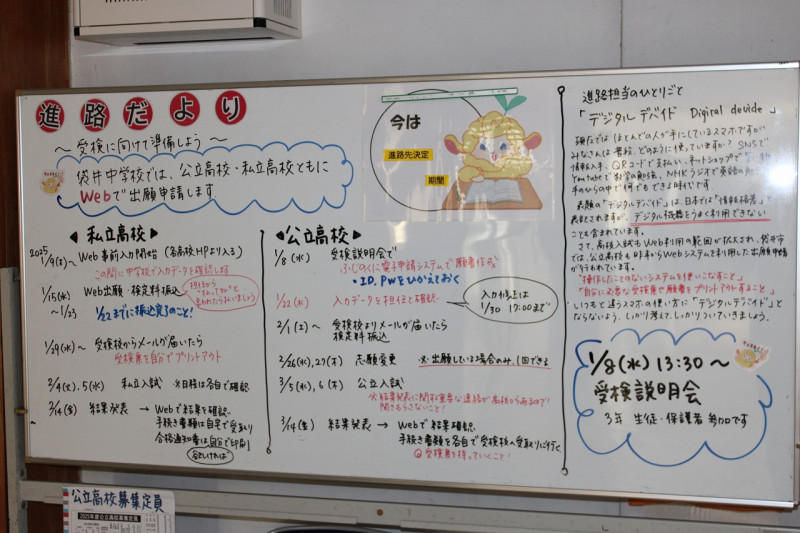 進路だより
～受検に向けて準備しよう～
袋井中学校では、公立高校・私立高校ともに
Webで出願申請します
今は
進路先決定
期間
私立高校
2025
1/9(木)～ Web事前入力開始（各高校HPより入る）
この間に中学校で入力データを確認します
1/15(水) Web出願・検定料振込
～1/23 1/22までに振込完了のこと！
1/29(水)～ 受検校からメールが届いたら
受検票を自分でプリントアウト
2/4(火)、5(水) 私立入試 ※日程は各自で確認
2/14(金) 結果発表 → Webで結果を確認
手続き書類は自宅で受取り
合格通知書は自分で印刷
公立高校
1/8(水) 受検説明会で
ふじのくに電子申請システムで願書作成
・ID、PWをひかえておく
1/22(水) 入力データを担任と確認
入力修正は
1/30 17:00まで
2/1(土)～ 受検校よりメールが届いたら
検定料振込
2/26(水)、27(木) 志願変更 ※出願している場合のみ、1回できる
3/5(水)、6(木) 公立入試
※結果発表に関する重要な連絡が高校からあるので
聞きもらさないこと！
3/14(金) 結果発表 → Webで結果確認
手続き書類を各自で受検校へ受取りに行く
受検票を持っていくこと！
進路担当のひとりごと
「デジタルデバイド Digital devide」
現在では ほとんどの人が手にしているスマホですが
みなさんは普段、どのように使っていますか？SNSで
情報入手、QRコードで支払い、ネットショップで
YouTubeで数学の勉強、NHKラジオで英語の
手のひらの中で何でもできる時代です
表題の「デジタルデバイド」は、日本では「情報格差」と
表記されますが、デジタル機器をうまく利用できない
ことも含まれています。
さて、高校入試もWeb利用の範囲が拡大され、袋井市
では、公立高校も昨年からWebシステムを利用した出願申請
が行われています。
"操作したことのないシステムを使いこなすこと"
"自分に必要な受検票や願書をプリントアウトすること"
いつもと違うスマホの使い方に「デジタルデバイド」と
ならないよう、しっかり考えて、しっかりついていきましょう。
1/8(水) 13:30～
受検説明会
3年 生徒・保護者 参加です
公立高校募集定員